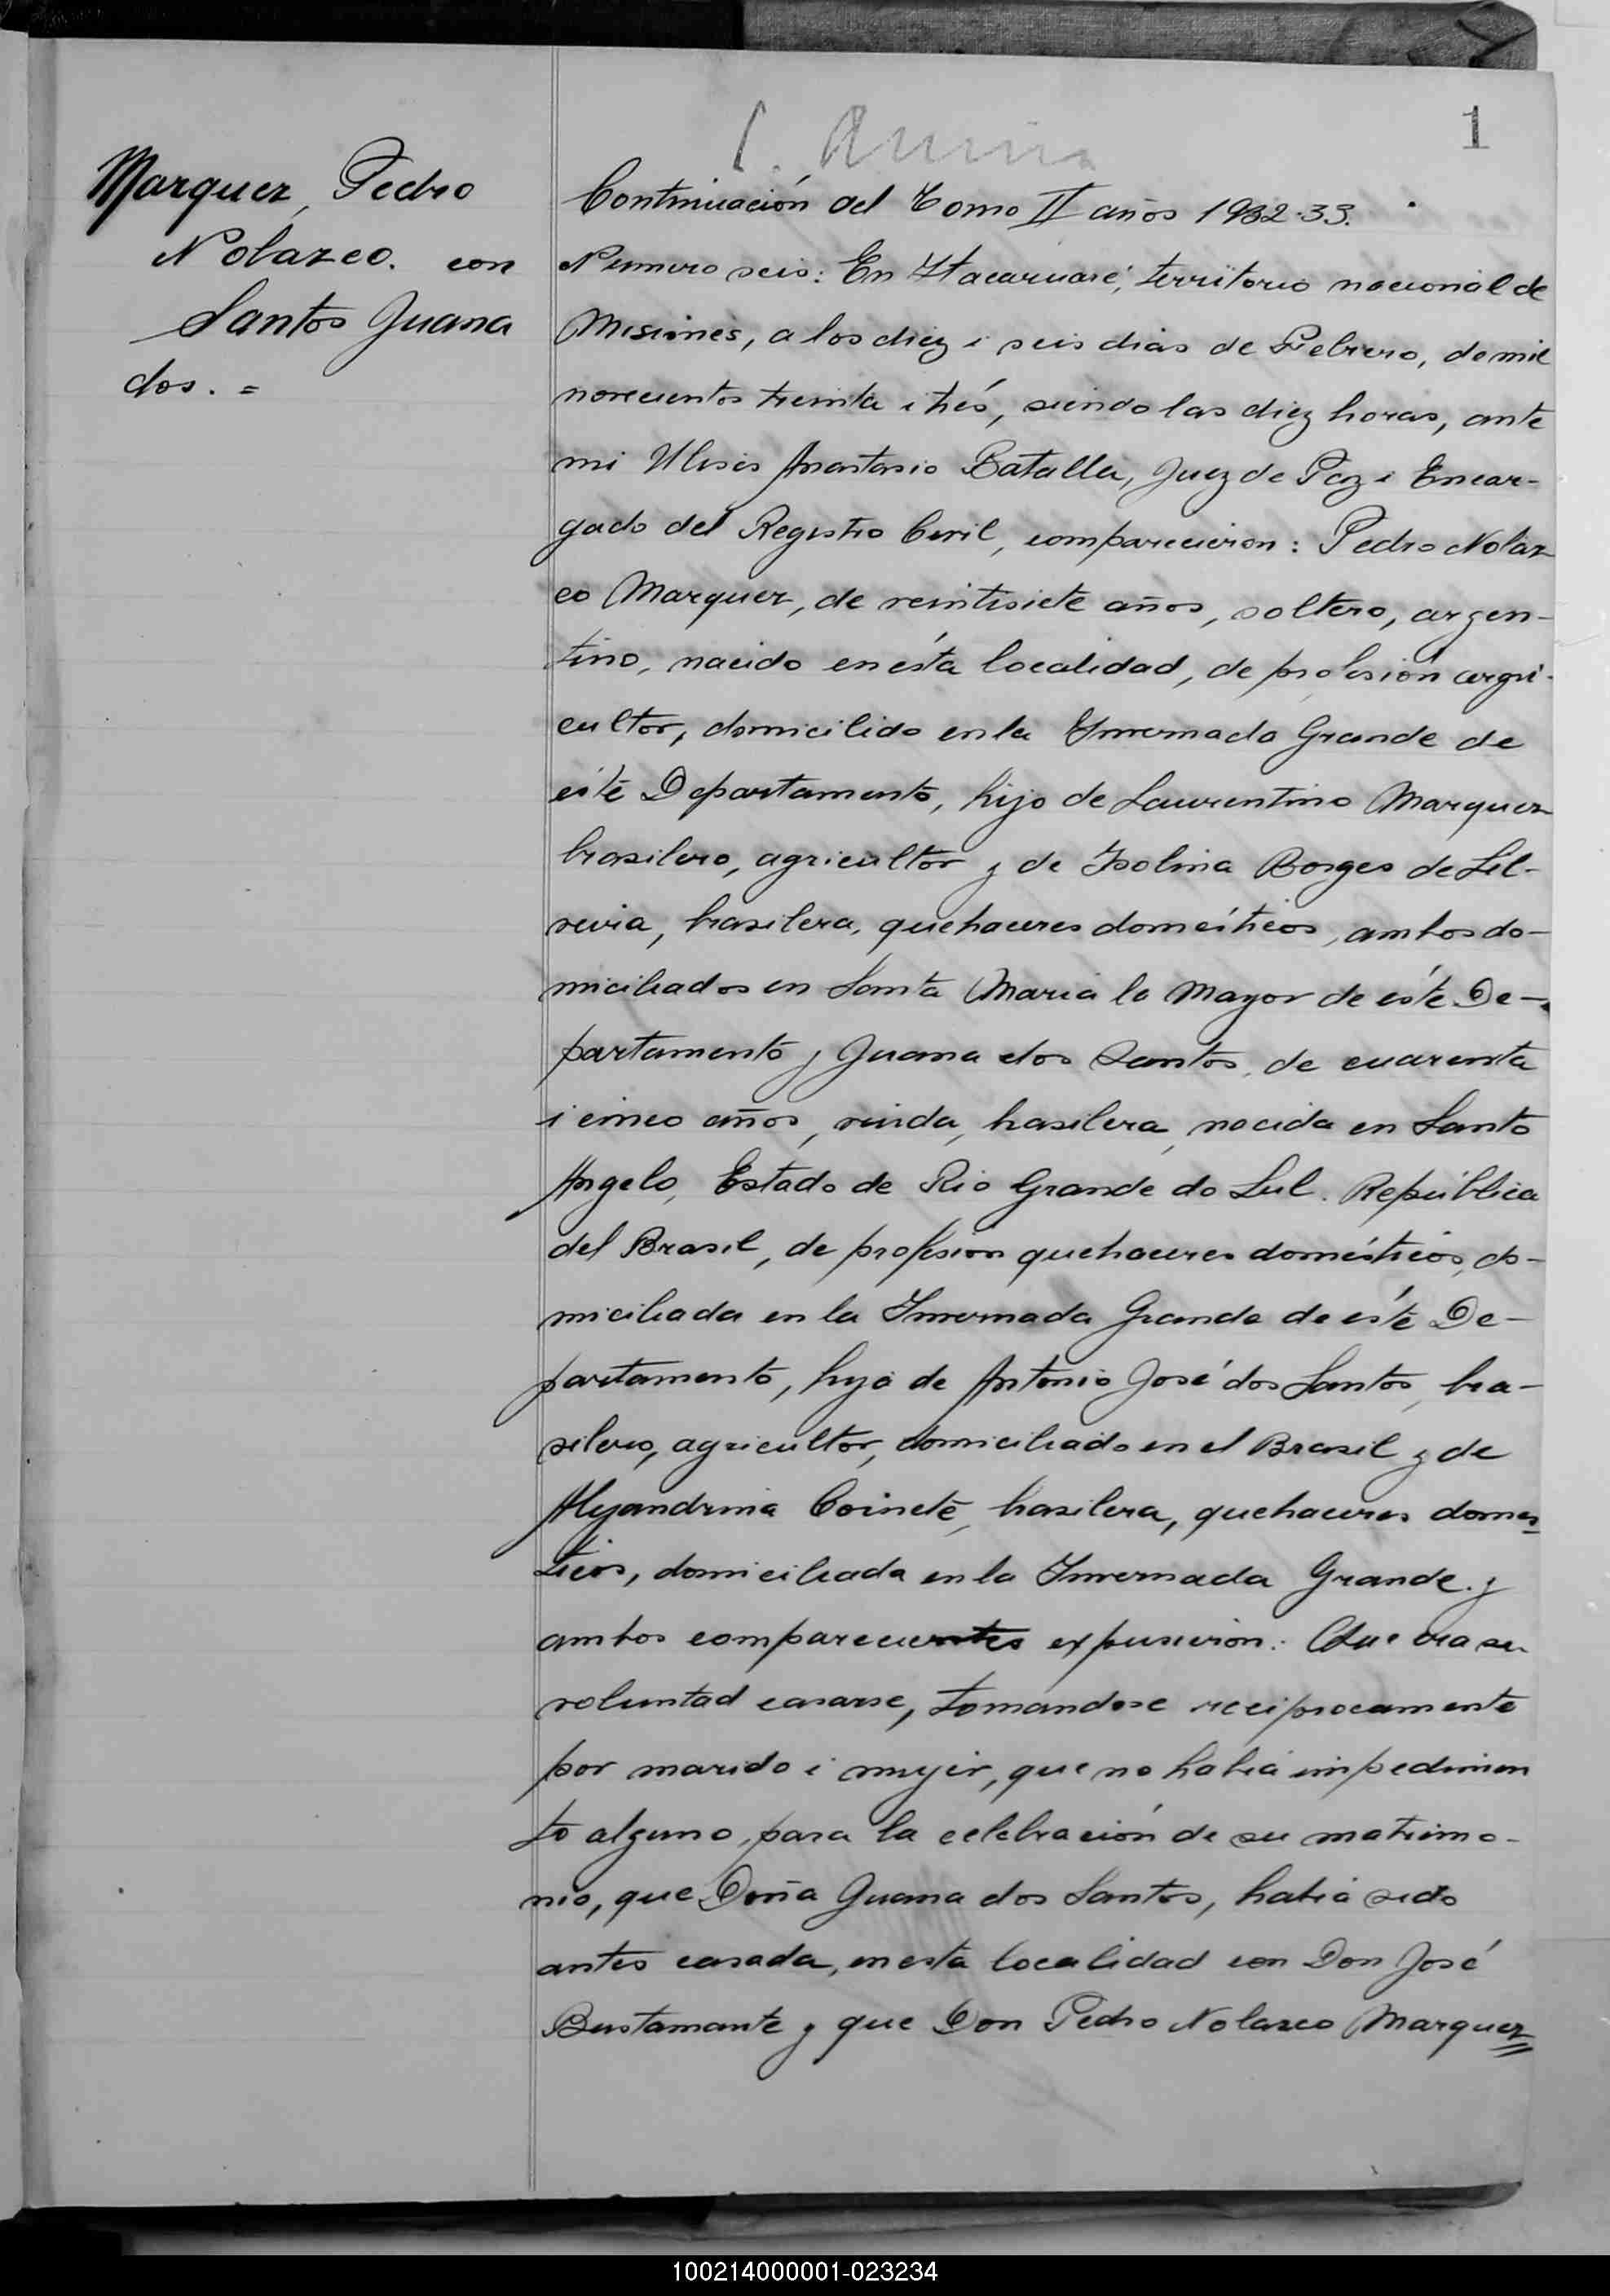 1
Marquez, Pedro
Nolazco. con
Santos Juana
dos. =
Continuación del Tomo II años 1932-33.
Numero seis: En Itacaruaré, territorio nacional de
Misiones, a los diez i seis dias de Febrero, de mil
novecientos treinta i trés, siendo las diez horas, ante
mi Ulises Anastasio Batalla, Juez de Paz i Encar-
gado del Registro Civil, comparecieron: Pedro Nolaz
co Marquez, de veintisiete años, soltero, argen-
tino, nacido en ésta localidad, de profesión agri-
cultor, domicilido en la Invernada Grande de
éste Departamento, hijo de Laurentino Marquez
brasilero, agricultor y de Isolina Borges de Sil-
veira, brasilera, quehaceres domésticos, ambos do-
miciliados en Santa Maria la Mayor de éste De-
partamento y Juana dos Santos, de cuarenta
i cinco años, viuda, brasilera, nacida en Santo
Angelo, Estado de Rio Grande do Sul. República
del Brasil, de profesion quehaceres domésticos, do-
miciliada en la Invernada Grande de éste De-
partamento, hija de Antonio José dos Santos, bra-
silero, agricultor, domiciliado en el Brasil y de
Alejandrina, brasilera, quehaceres domes
ticos, domiciliada en la Invernada Grande. y
ambos comparecientes expusieron: Que era su
voluntad casarse, tomandose reciprocamente
por marido i mujer, que no habia impedimen
to alguno, para la celebración de su matrimo-
nio, que Doña Juana dos Santos, habia sido
antes casada, en esta localidad con Don José
Bustamante y que Don Pedro Nolazco Marquez
100214000001-023234